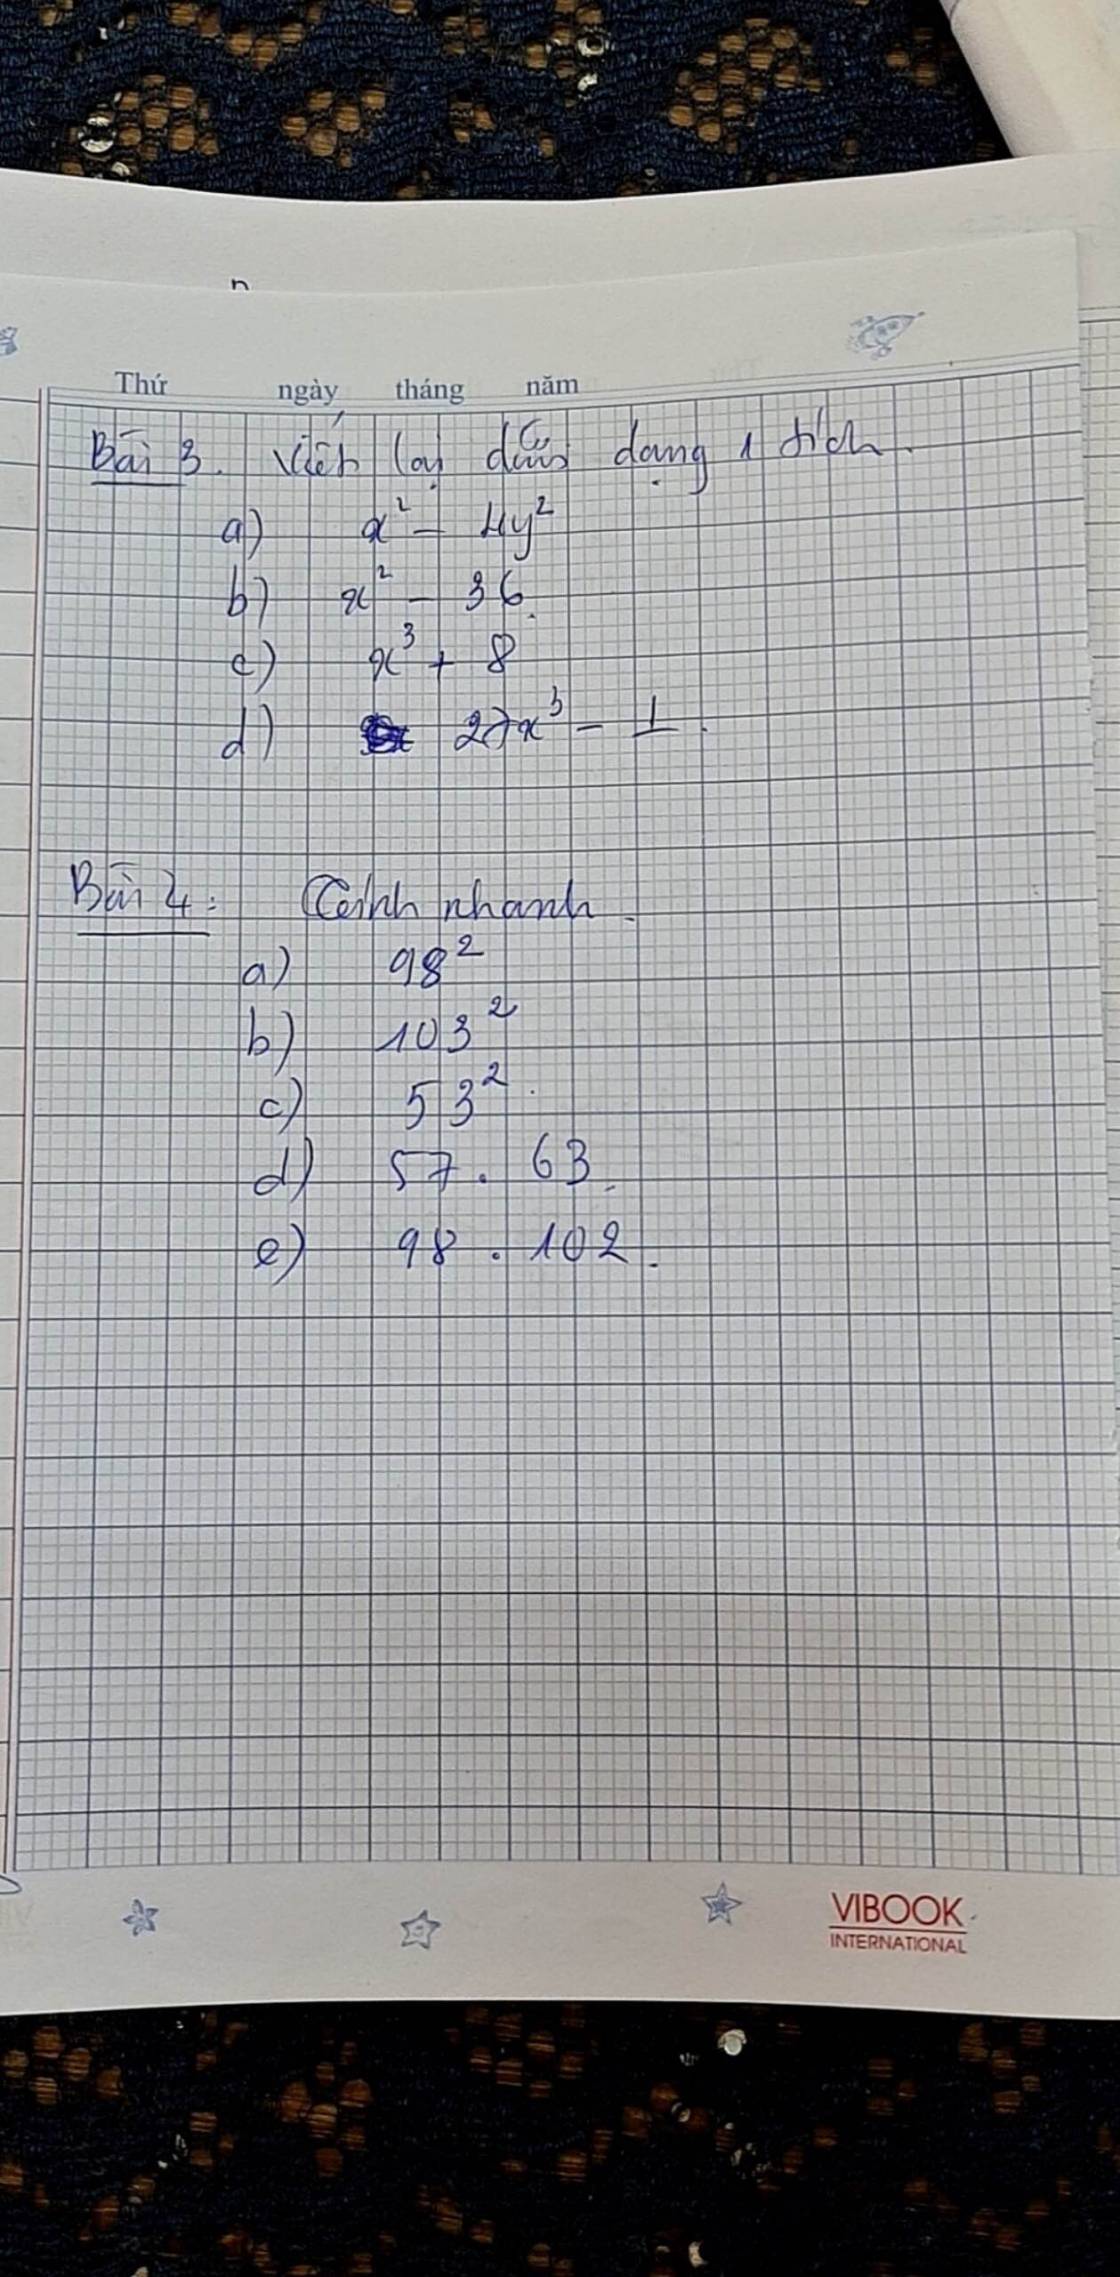 Thứ ngày tháng năm
Bài 3. Viết lại dưới dạng 1 tích.
a) x² - 4y²
b) x² - 36.
c) x³ + 8
d) 27x³ - 1.
Bài 4: Tính nhanh.
a) 98²
b) 103²
c) 53².
d) 57. 63.
e) 98. 102.
VIBOOK
INTERNATIONAL